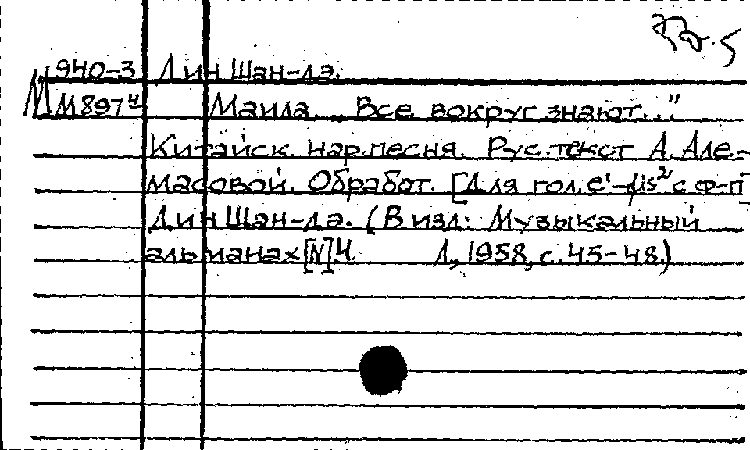 940-3 Дин Шан-дэ.
М М897ч Маила. „Все вокруг знают..."
Китайск. нар.песня. Рус.текст А. Але-
масовой. Обработ. [Для гол. e'-fis²' с ф-п]
Дин Шан-дэ. (В изд: Музыкальный
альманах [N]4 Л., 1958, с. 45-48.)